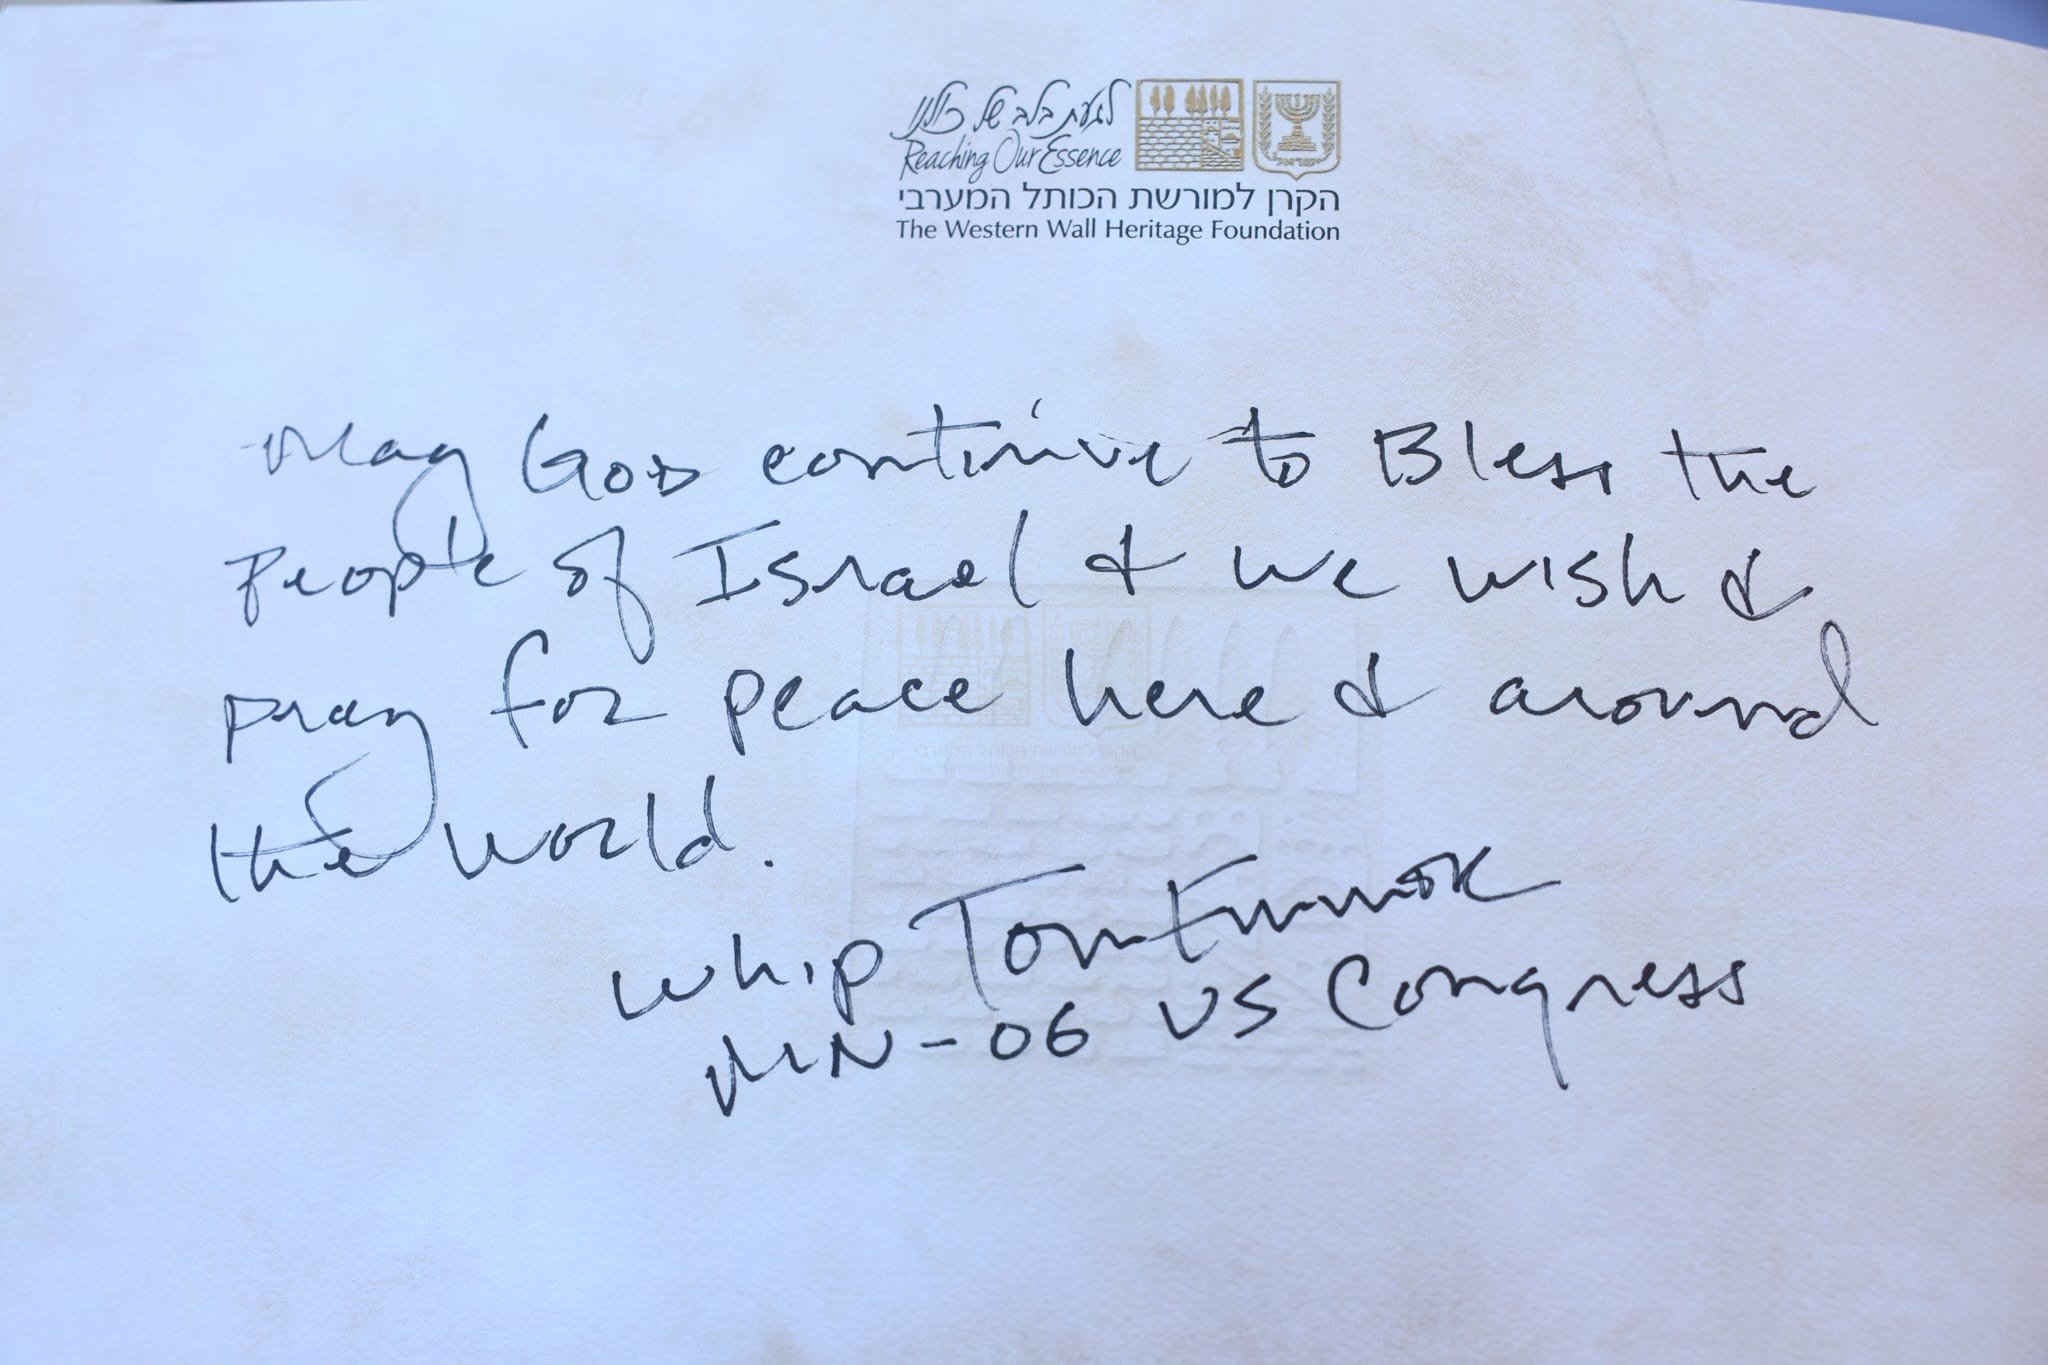 לגעת בלב של כולנו
Reaching Our Essence
ישראל
הקרן למורשת הכותל המערבי
The Western Wall Heritage Foundation
May God continue to Bless the
People of Israel & we wish &
pray for peace here & around
הקרן למורשת הכותל המערבי
The Western Wall Heritage Foundation
the world.
Whip Tom Emmer
MN-06 US Congress